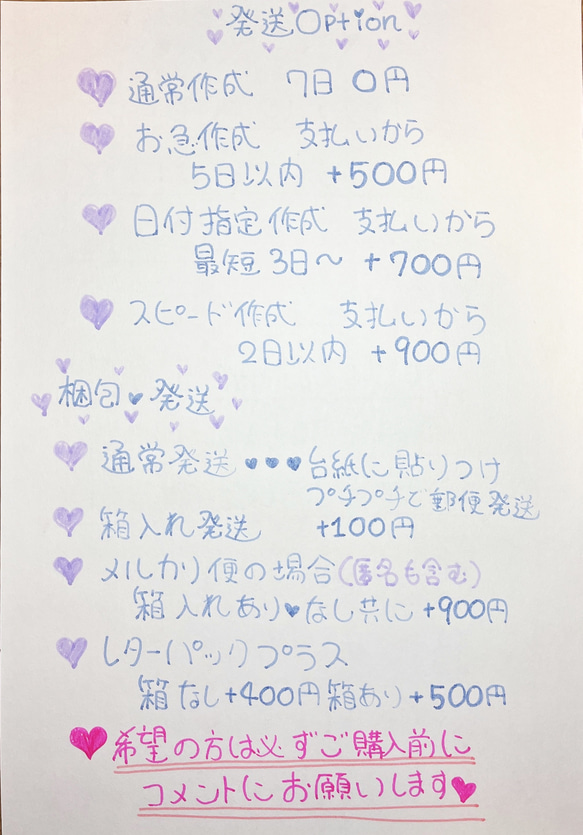 発送Option
通常作成 7日 0円
お急作成 支払いから
5日以内 +500円
日付指定作成 支払いから
最短3日〜 +700円
スピード作成 支払いから
2日以内 +900円
梱包♥発送
通常発送♥♥♥台紙に貼りつけ
プチプチで郵便発送
箱入れ発送 +100円
メルカリ便の場合(匿名も含む)
箱入れあり♥なし共に+900円
レターパックプラス
箱なし+400円箱あり+500円
希望の方は必ずご購入前に
コメントにお願いします♥